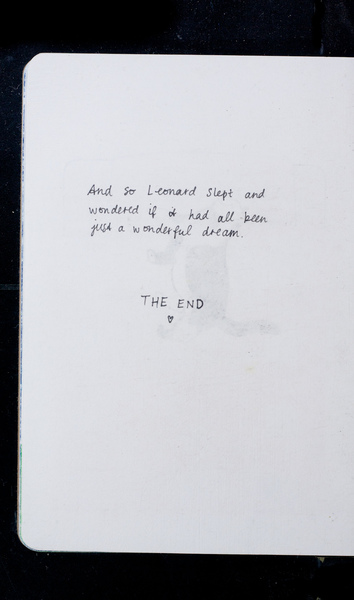 And so Leonard slept and
wondered if it had all been
just a wonderful dream.
THE END